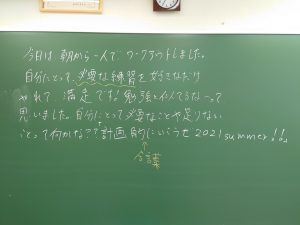 今日は朝から一人でワークアウトしました。
自分にとって、必要な練習を好きなだけ
やれて、満足です！勉強と似てるな〜って
思いました。自分にとって必要なことや足りない
ことって何かな??計画的にいこうぜ2021summer!!
合言葉